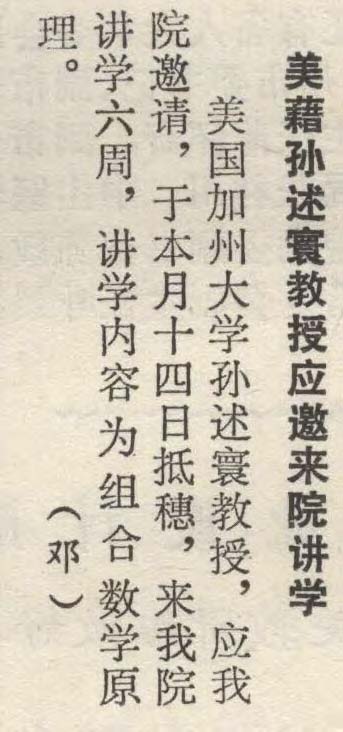 美藉孙述寰教授应邀来院讲学
美国加州大学孙述寰教授，应我
院邀请，于本月十四日抵穗，来我院
讲学六周，讲学内容为组合数学原
理。
（邓）